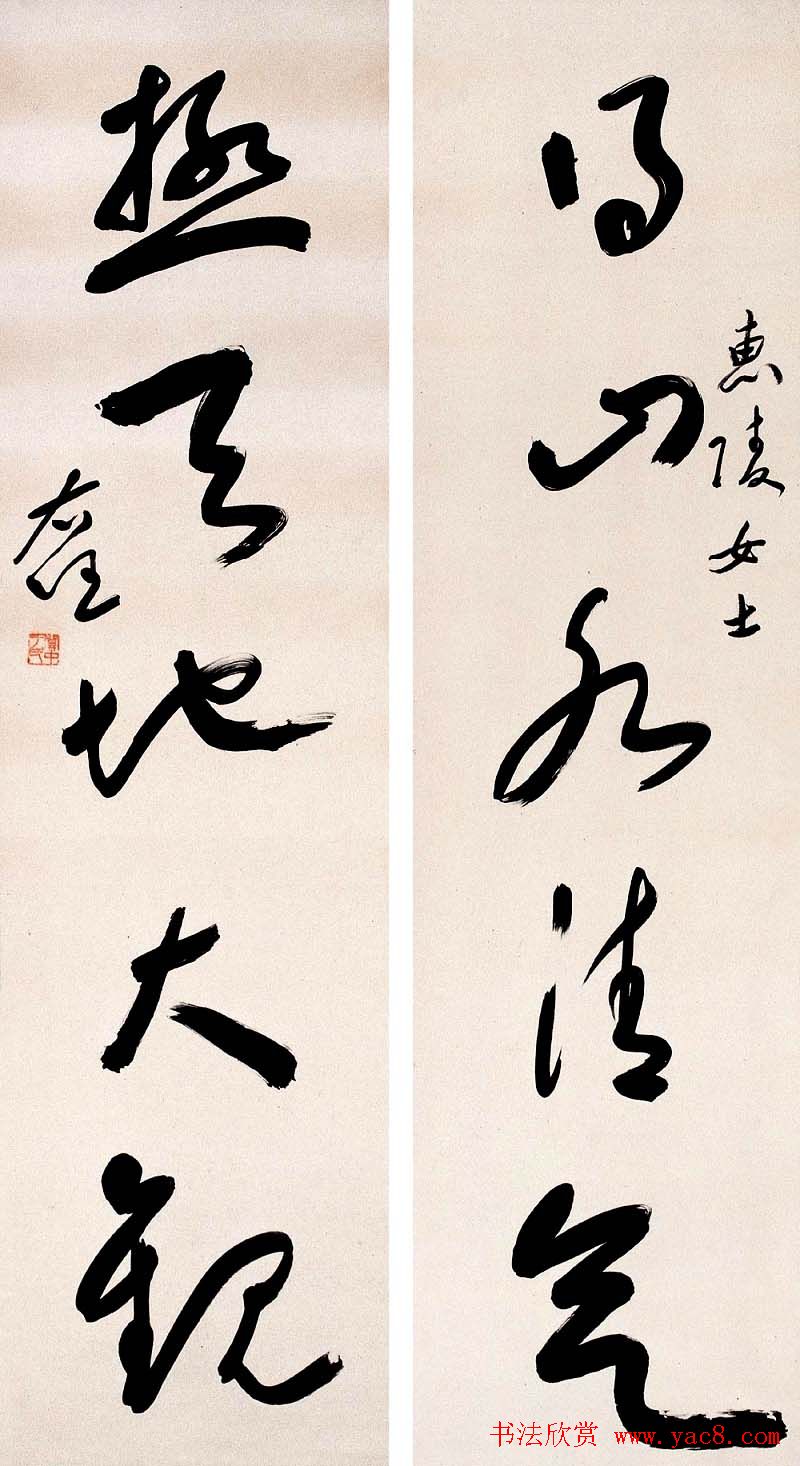 得山水清气
惠陵女士
极天地大观
右任
书法欣赏 www.yac8.com